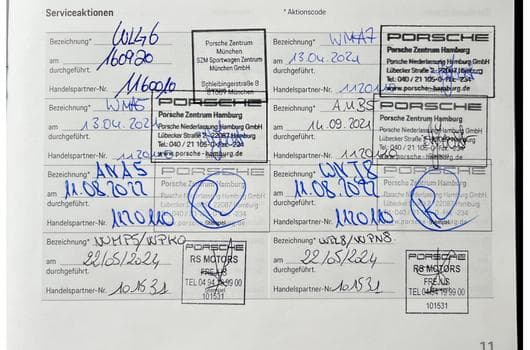 Serviceaktionen
* Aktionscode
Bezeichnung* WLG6
am 160920
durchgeführt.
Handelspartner-Nr. 11600/0
Porsche Zentrum
München
SZM Sportwagen Zentrum
München GmbH
Schleibingerstraße 8
81669 München
Bezeichnung* WMA7
am 13.04.2021
durchgeführt.
Handelspartner-Nr.
PORSCHE
Porsche Zentrum Hamburg
Porsche Niederlassung Hamburg GmbH
Lübecker Straße 2 · 22087 Hamburg
Tel.: 040 / 21 105-0 · Fax: -234
www.porsche-hamburg.de
Bezeichnung* WMA5
am 13.04.2021
durchgeführt.
Handelspartner-Nr.
PORSCHE
Porsche Zentrum Hamburg
Porsche Niederlassung Hamburg GmbH
Lübecker Straße 2 · 22087 Hamburg
Tel.: 040 / 21 105-0 · Fax: -234
www.porsche-hamburg.de
Bezeichnung* AMB5
am 14.09.2021
durchgeführt.
Handelspartner-Nr.
PORSCHE
Porsche Zentrum Hamburg
Porsche Niederlassung Hamburg GmbH
Lübecker Straße 2 · 22087 Hamburg
Tel.: 040 / 21 105-0 · Fax: -234
www.porsche-hamburg.de
Bezeichnung* ANA5
am 11.08.2022
durchgeführt.
Handelspartner-Nr. 1120110
Bezeichnung* WNT8
am 11.08.2022
durchgeführt.
Handelspartner-Nr. 1120110
Bezeichnung* WMP5/WPK0
am 22/05/2024
durchgeführt.
Handelspartner-Nr. 101531
PORSCHE
RS MOTORS
FREJUS
TEL 04 94 19 99 00
101531
Bezeichnung* WRL8/WPN8
am 22/05/2024
durchgeführt.
Handelspartner-Nr. 101531
PORSCHE
RS MOTORS
FREJUS
TEL 04 94 19 99 00
101531
11